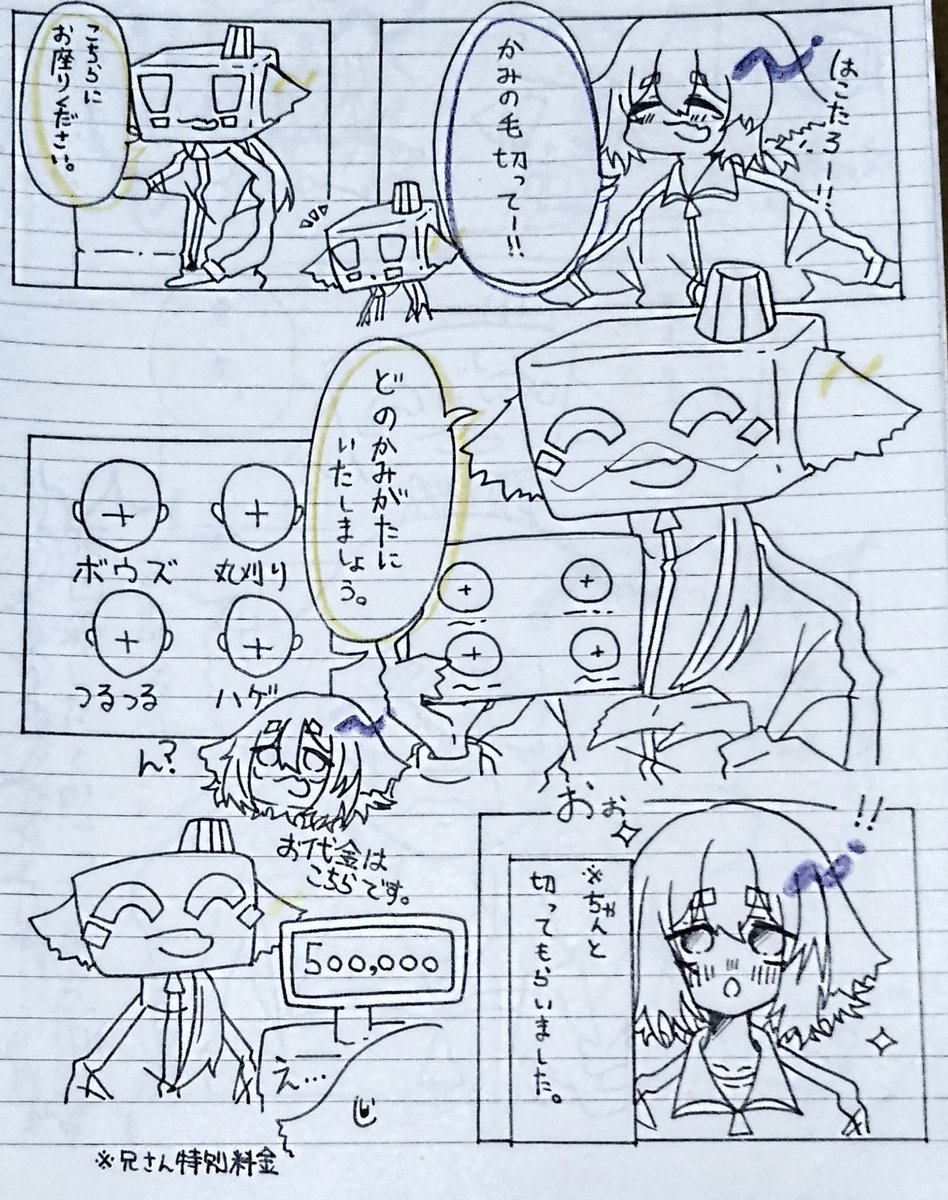 はこたろー!!
かみの毛
切ってー!!
こちらに
お座りください。
どのかみがたに
いたしましょう。
ボウズ
丸刈り
つるつる
ハゲ
ん?
おぉ
!!
※ちゃんと
切ってもらいました。
お代金は
こちらです。
500,000
え…
※兄さん特別料金